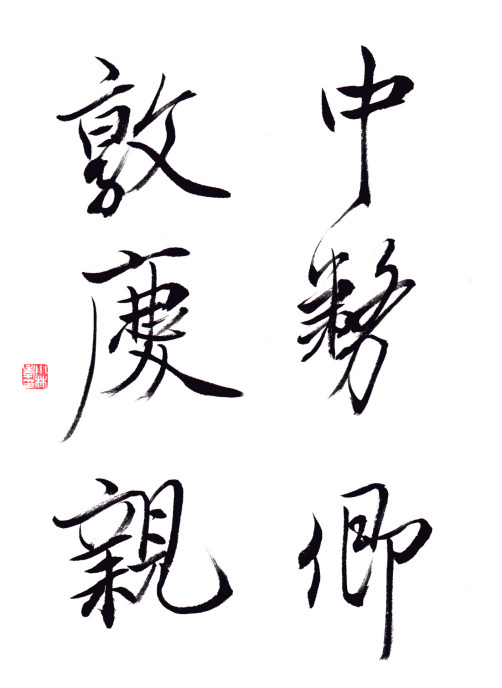 中務卿
敦慶親